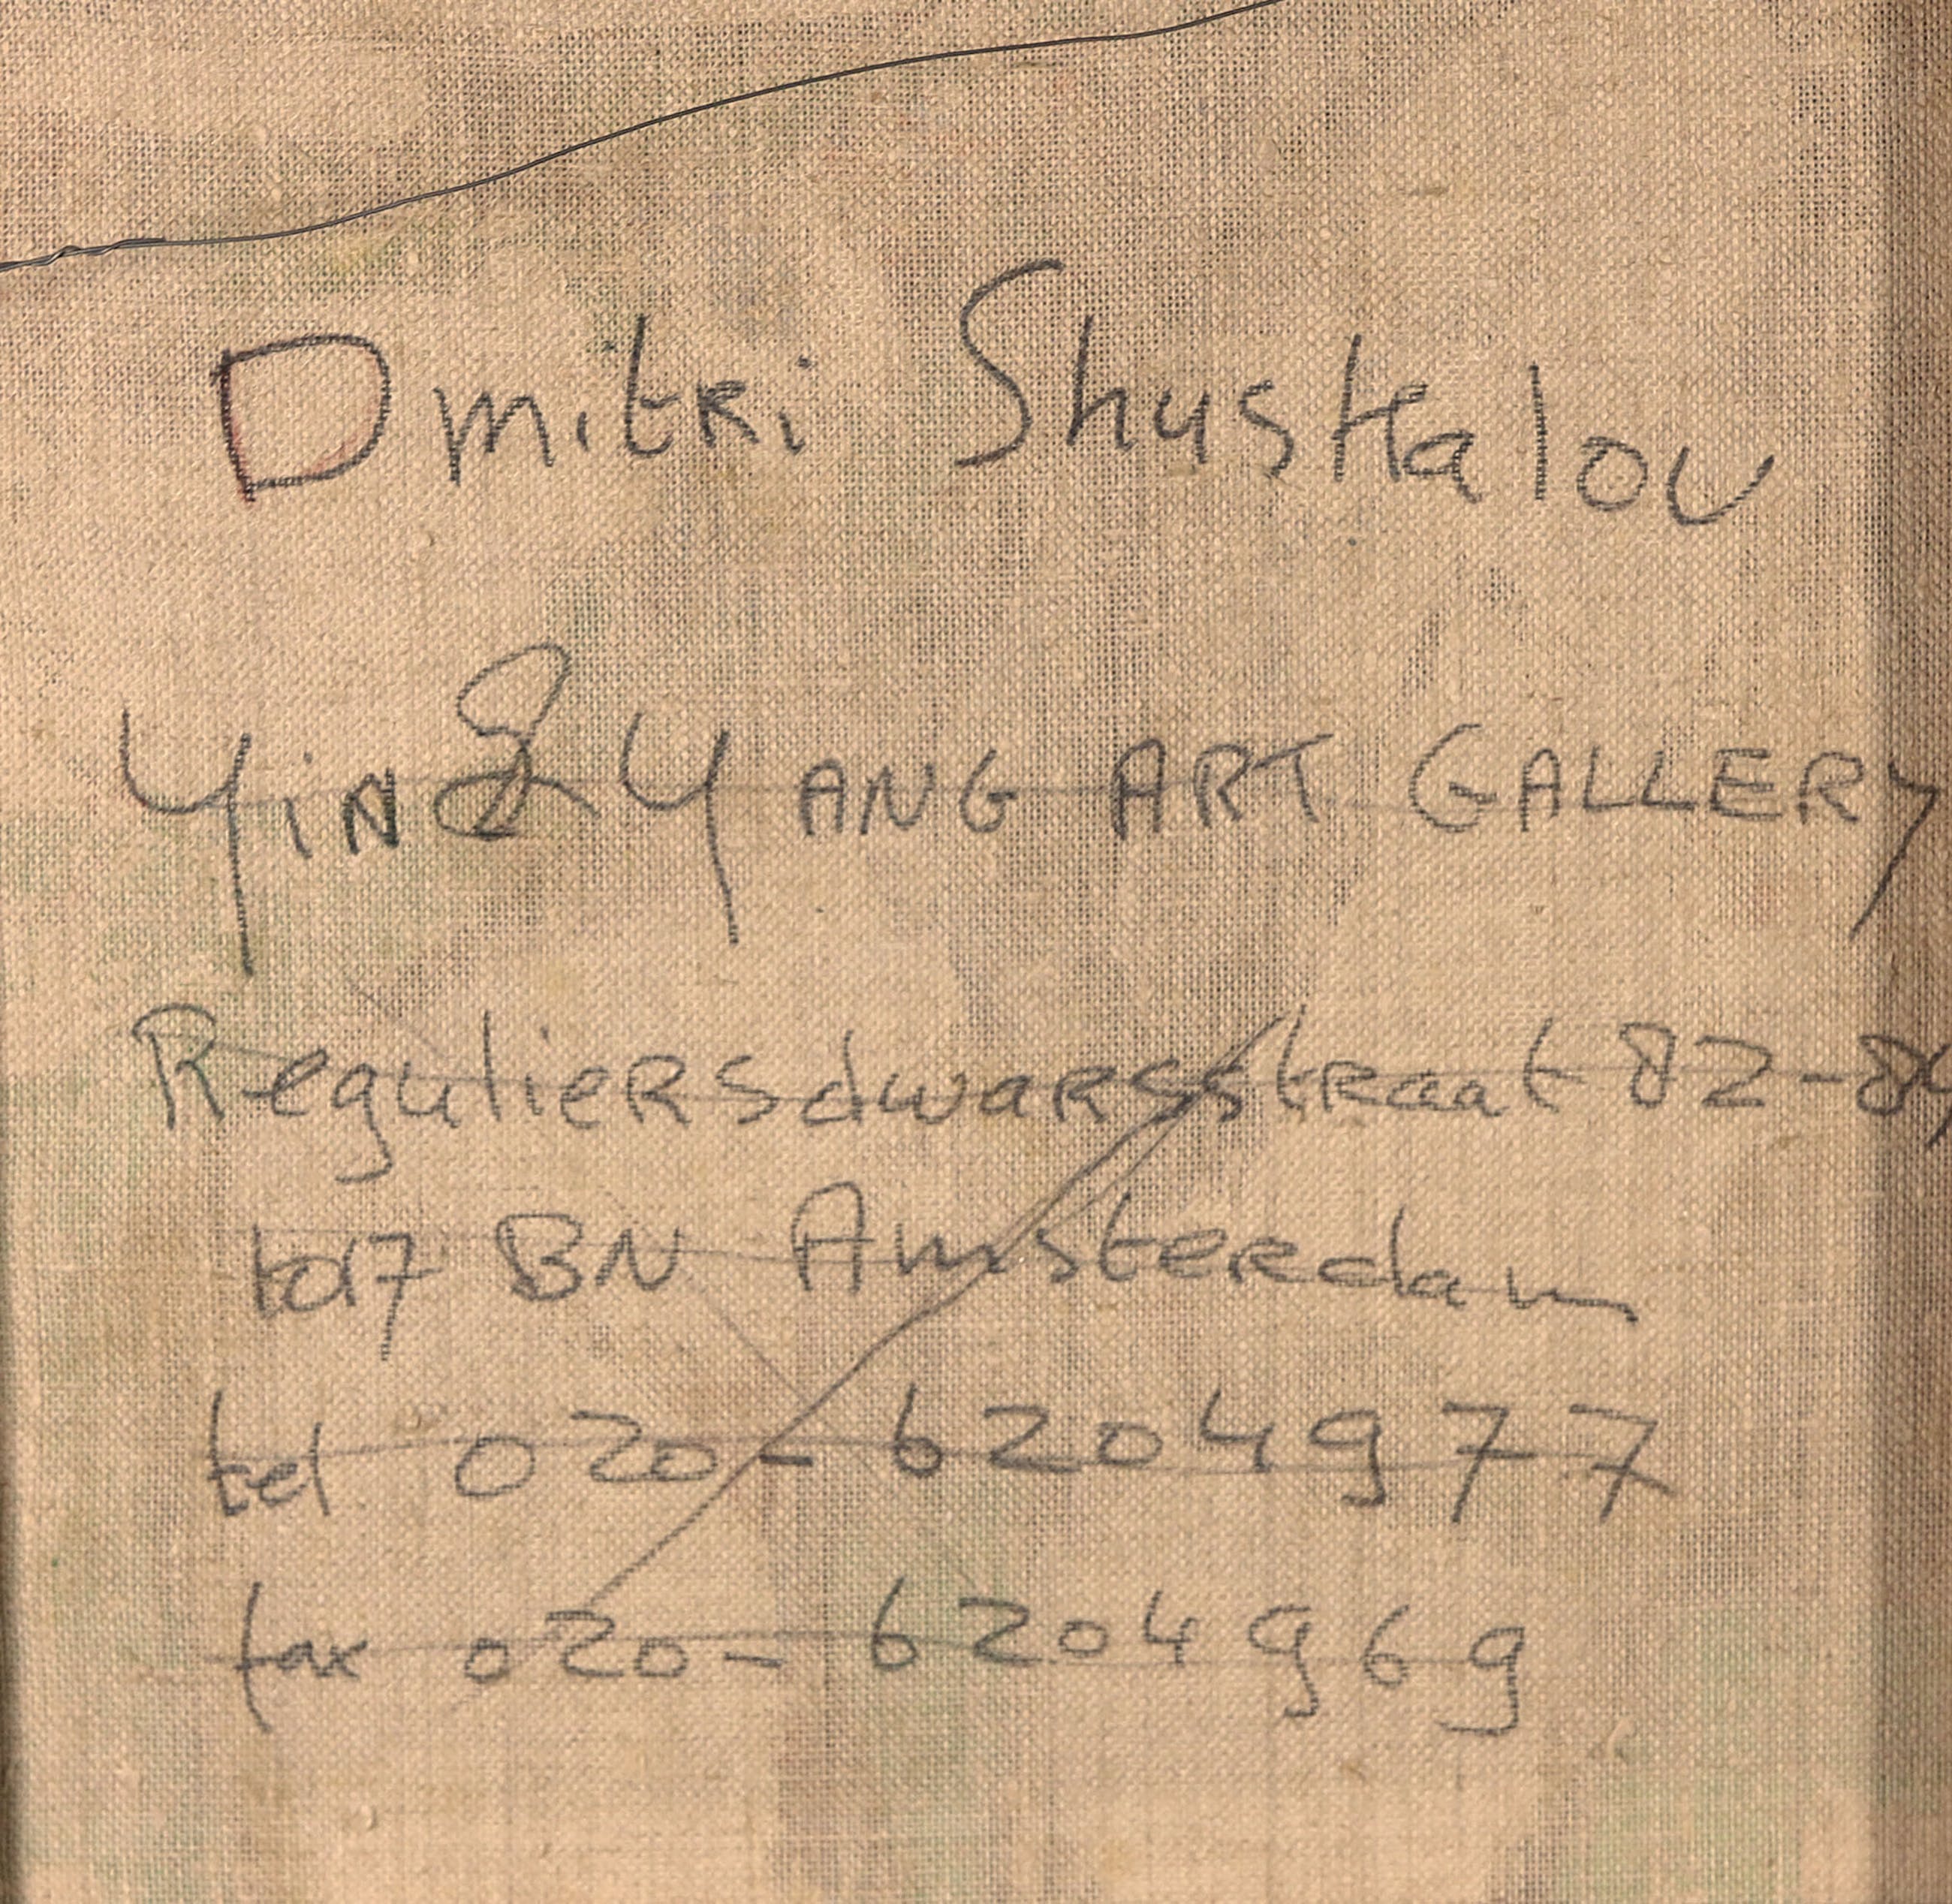 Dmitri Shustalov
Yin & Yang ART GALLERY
Reguliersdwarsstraat 82-84
1017 BN Amsterdam
tel 020-6204977
fax 020-6204969